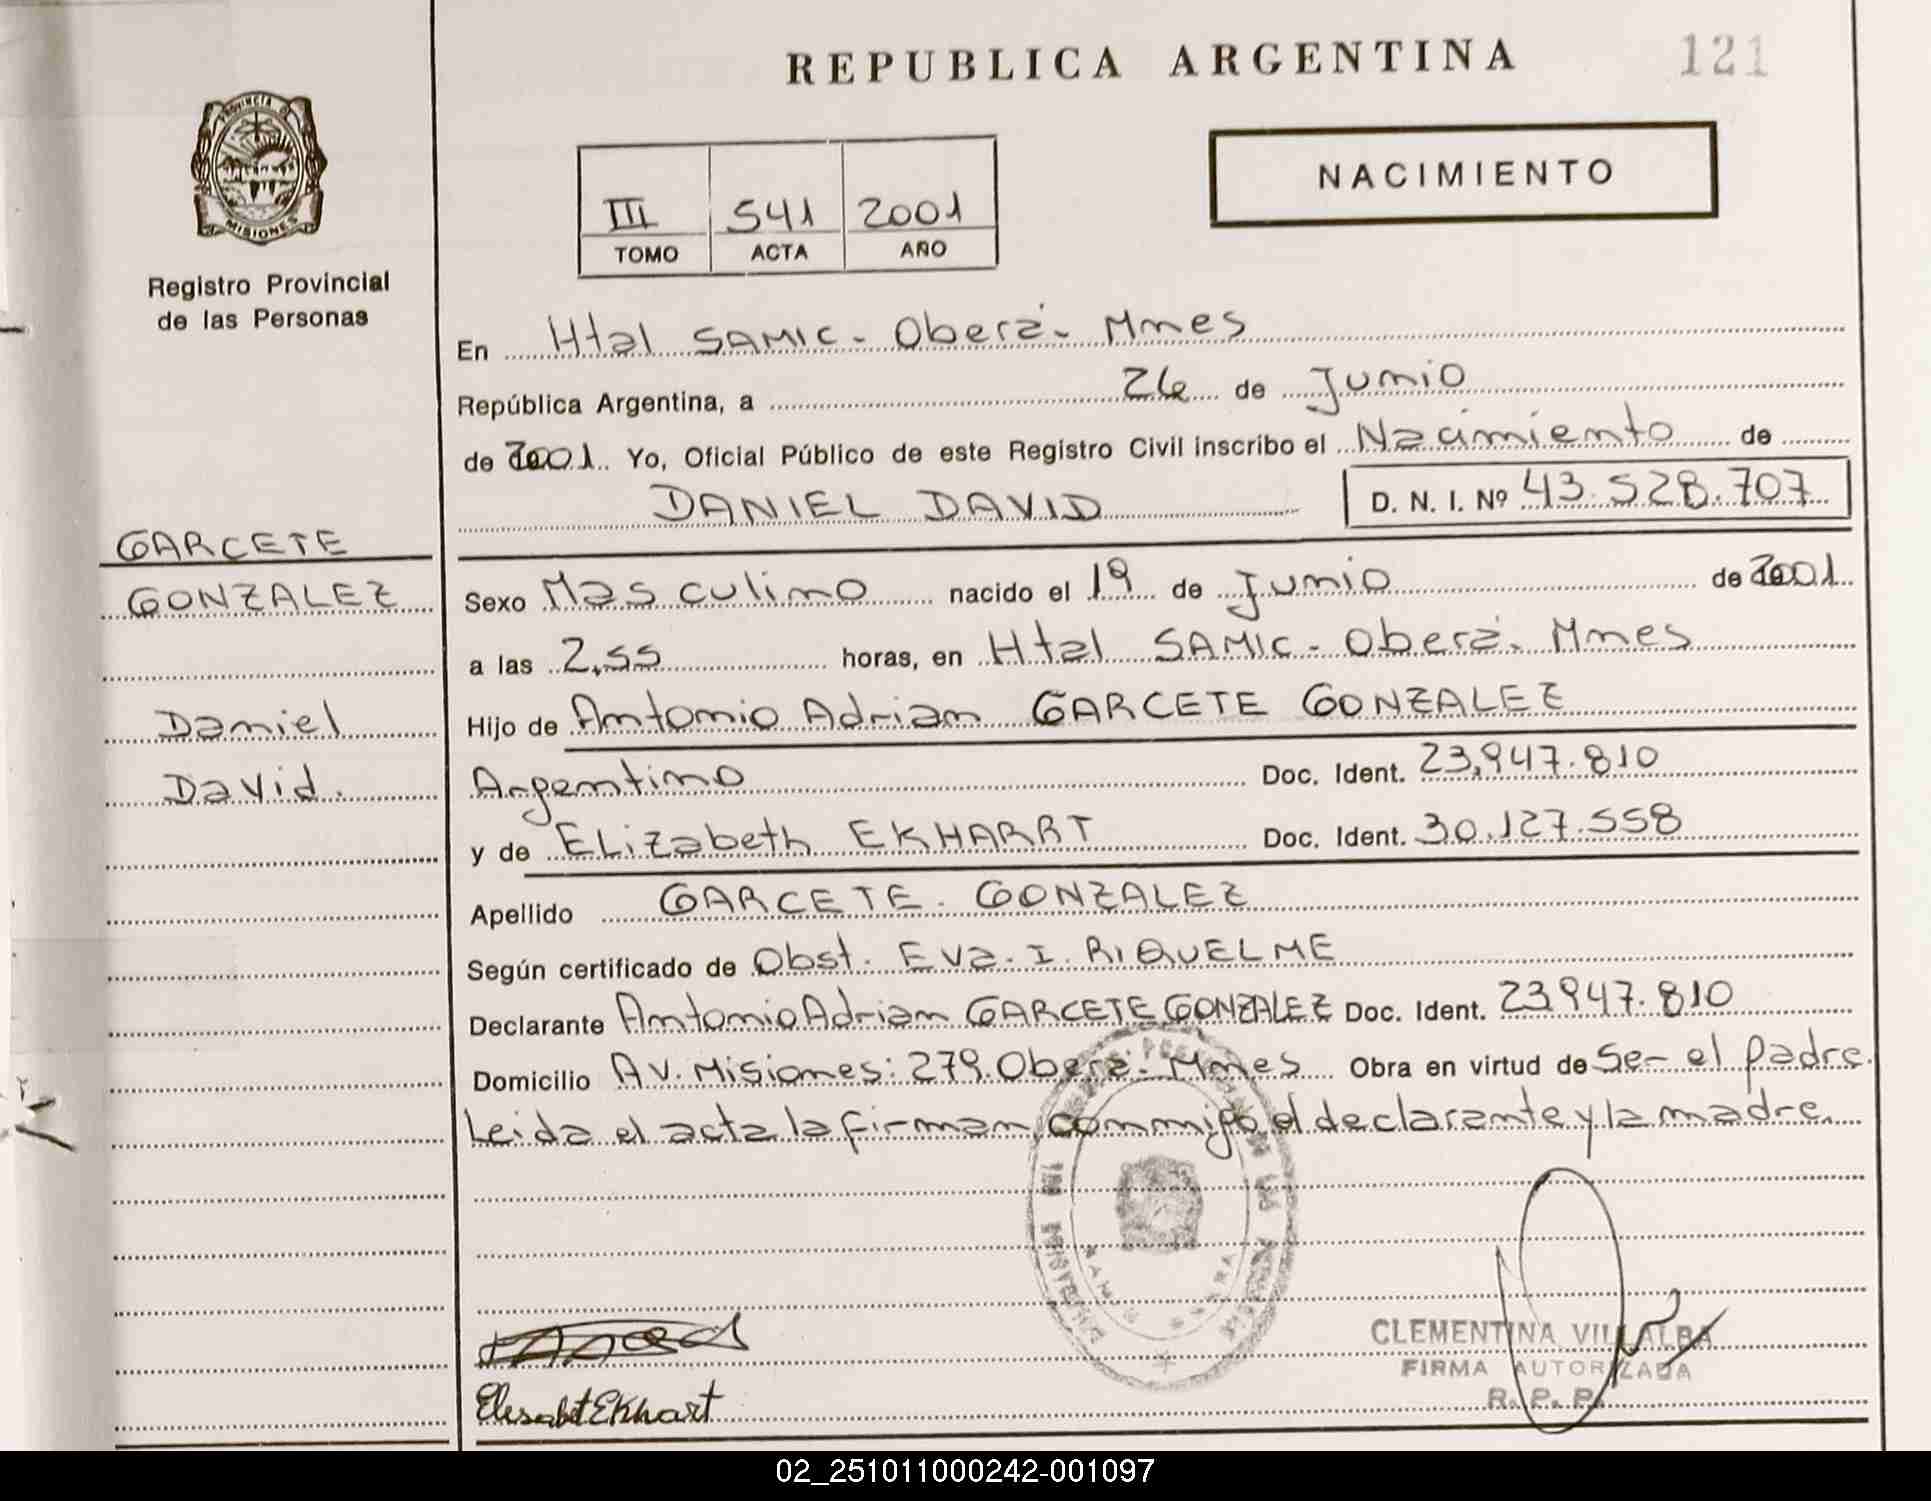 REPUBLICA ARGENTINA
121
PROVINCIA DE
MISIONES
Registro Provincial
de las Personas
NACIMIENTO
III 541 2001
TOMO ACTA AÑO
En Htal SAMIC - Oberá - Mnes
República Argentina, a 26 de Junio
de 2001. Yo, Oficial Público de este Registro Civil inscribo el Nacimiento de
DANIEL DAVID D. N. I. Nº 43.528.707
GARCETE
GONZALEZ
Daniel
David.
Sexo Masculino nacido el 19 de Junio de 2001
a las 2,55 horas, en Htal SAMIC - Oberá - Mnes
Hijo de Antonio Adrian GARCETE GONZALEZ
Argentino Doc. Ident. 23,947.810
y de ELizabeth EKHARRT Doc. Ident. 30.127.558
Apellido GARCETE. GONZALEZ
Según certificado de Obst. Eva. I. RIQUELME
Declarante Antonio Adrian GARCETE GONZALEZ Doc. Ident. 23947.810
Domicilio AV. Misiones: 279. Oberá. Mnes Obra en virtud de Ser el padre.
Leida el acta la firman conmigo el declarante y la madre.
Elisabet Ekhart
CLEMENTINA VILLALBA
FIRMA AUTORIZADA
R. P. P.
02_251011000242-001097